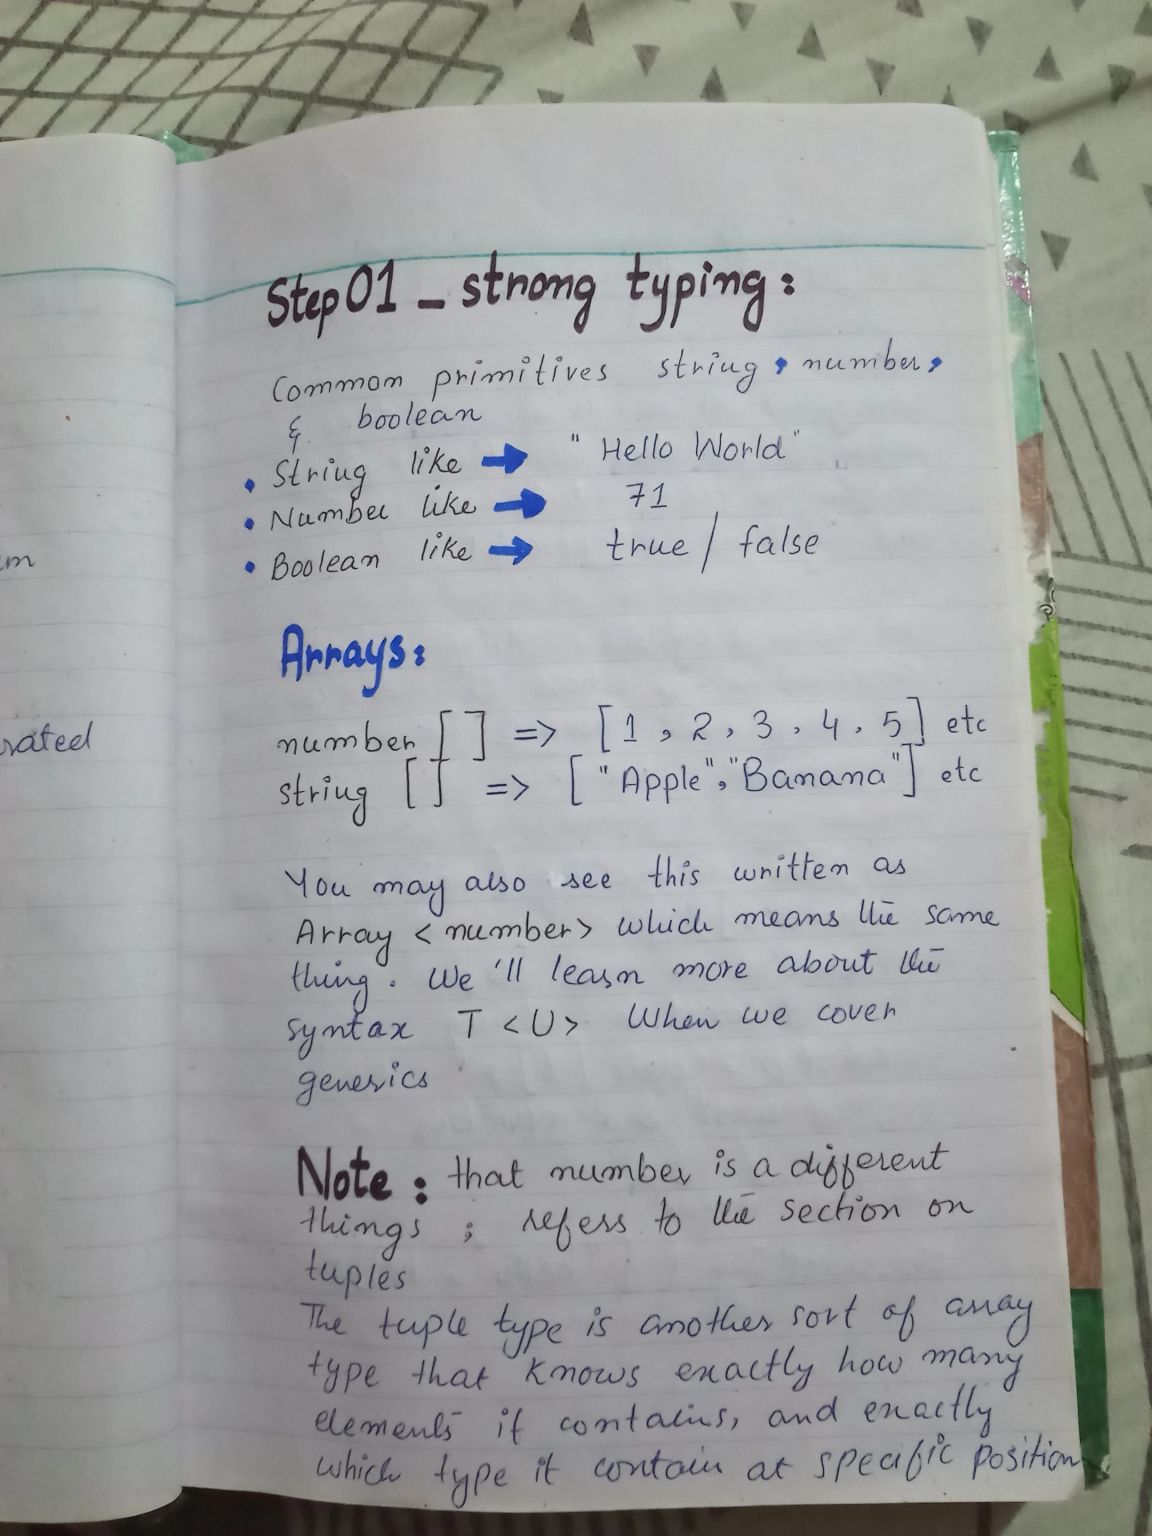 m
rated
Step01 - strong typing:
Common primitives string, number,
& boolean
• String like → "Hello World"
• Number like → 71
• Boolean like → true / false
Arrays:
number [ ] => [1, 2, 3, 4, 5] etc
string [ ] => ["Apple","Banana"] etc
You may also see this written as
Array <number> which means the same
thing. We'll learn more about the
syntax T <U> When we cover
generics
Note: that number is a different
things ; refers to the section on
tuples
The tuple type is another sort of array
type that knows exactly how many
elements it contains, and exactly
which type it contain at specific position